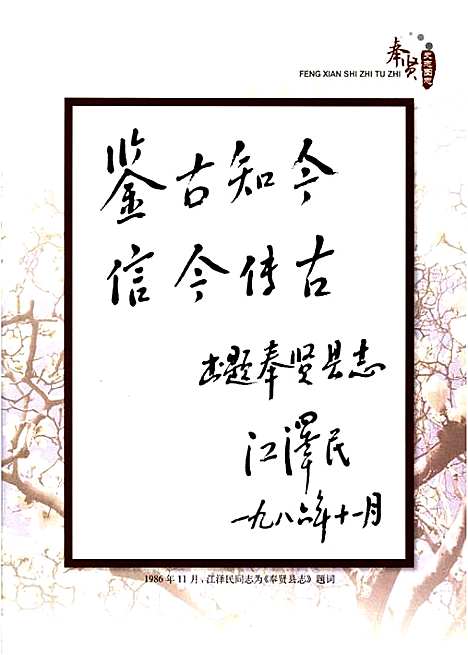 奉贤
史志图志
FENG XIAN SHI ZHI TU ZHI
鉴古知今
信今传古
书题奉贤县志
江泽民
一九八六年十一月
1986年11月,江泽民同志为《奉贤县志》题词